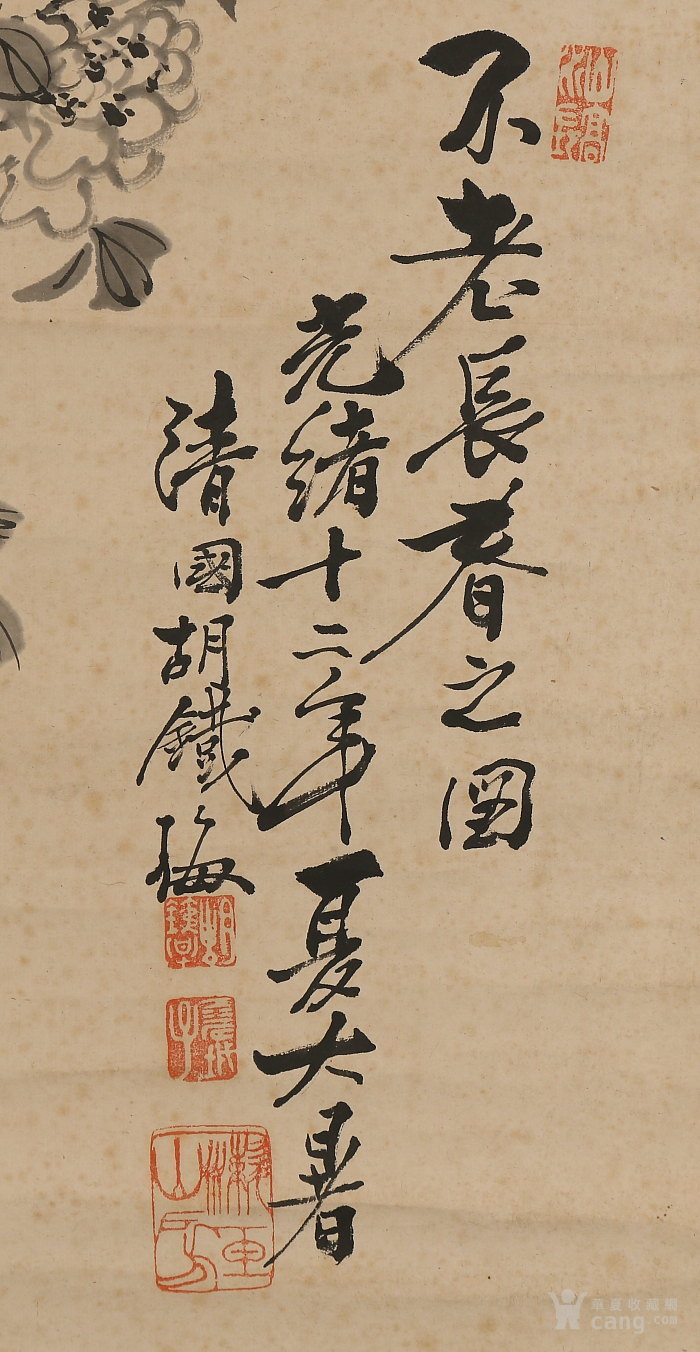 不老長春之圖
光緒十二年夏大暑
清國胡鐵梅
華夏收藏網
cang.com